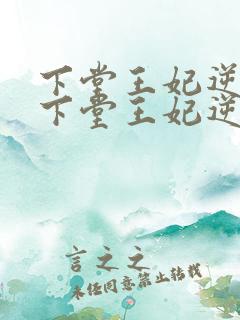 下堂王妃逆
下堂王妃逆
言之之
未经同意禁止转载